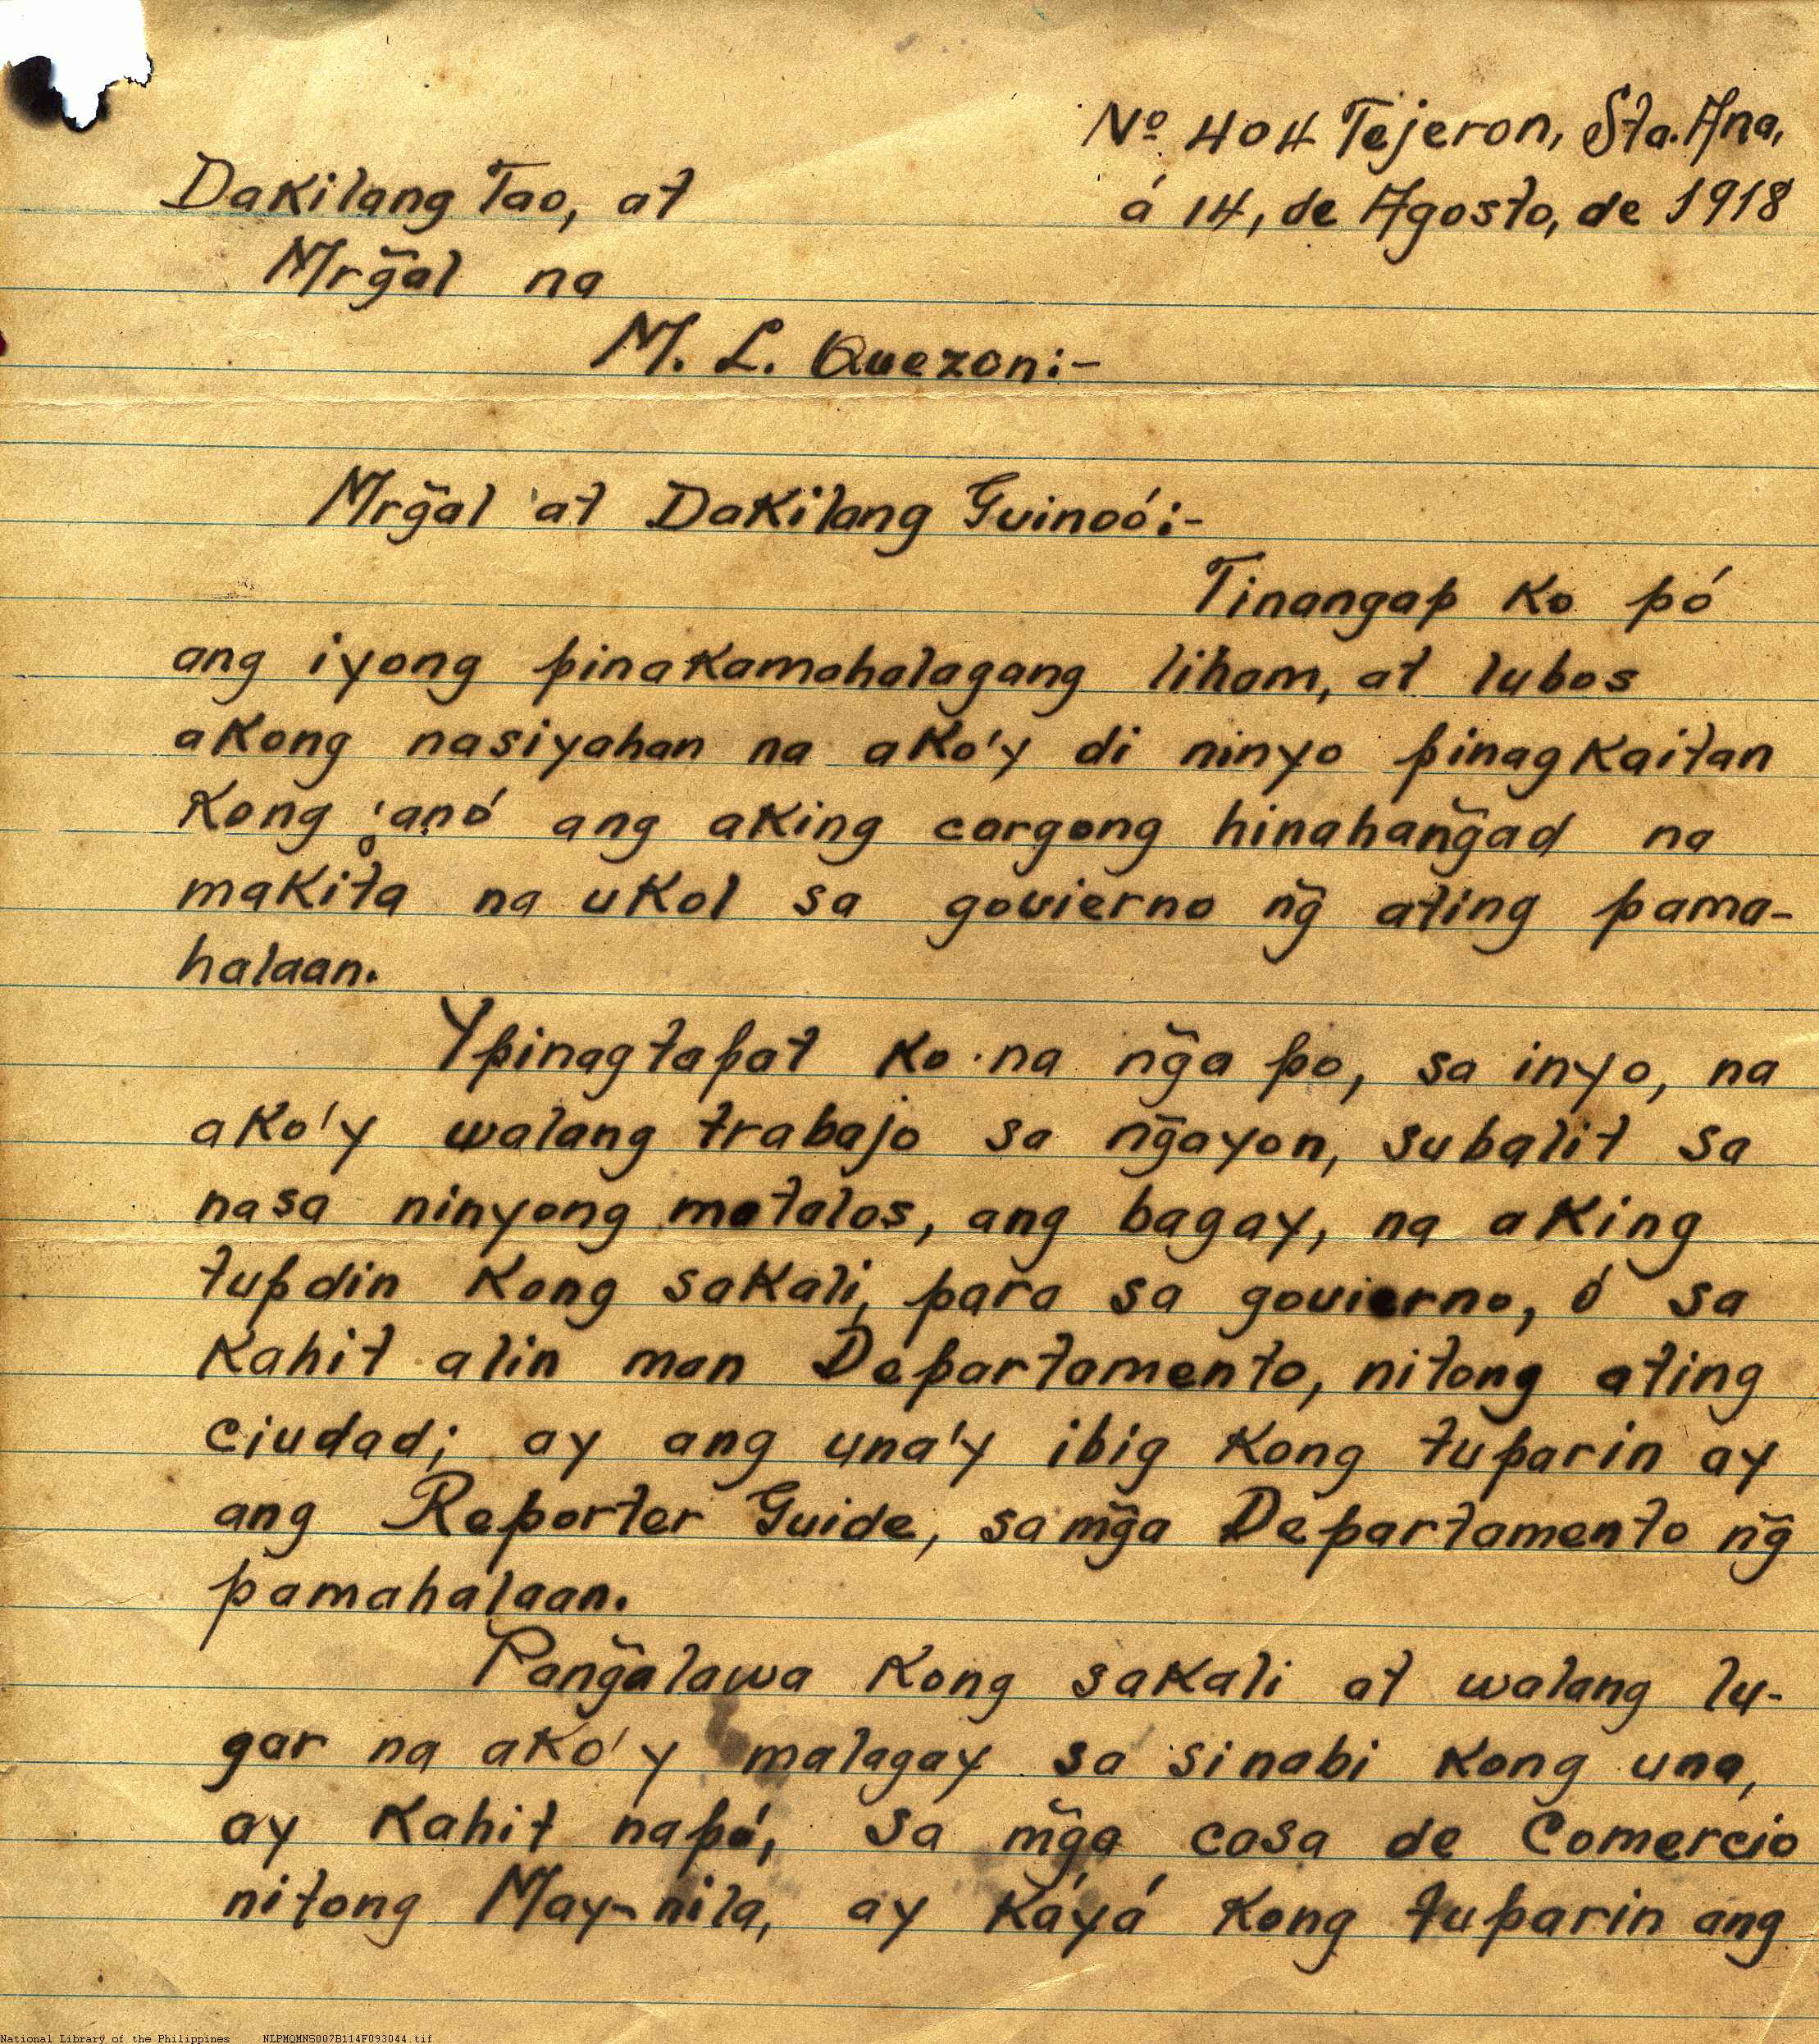 Nº 404 Tejeron, Sta. Ana,
á 14, de Agosto, de 1918
Dakilang Tao, at
Mrg̃al na
M. L. Quezon:-
Mrg̃al at Dakilang Guinoó:-
Tinangap ko pó
ang iyong pinakamahalagang liham, at lubos
akong nasiyahan na ako'y di ninyo pinagkaitan
kong anó ang aking cargong hinahang̃ad na
makita na ukol sa govierno ng̃ ating pama-
halaan.
Ypinagtapat ko na ng̃a po, sa inyo, na
ako'y walang trabajo sa ng̃ayon, subalit sa
nasa ninyong matalos, ang bagay, na aking
tupdin kong sakali, para sa govierno, ó sa
kahit alin man Departamento, nitong ating
ciudad; ay ang una'y ibig kong tuparin ay
ang Reporter Guide, sa mg̃a Departamento ng̃
pamahalaan.
Pang̃alawa kong sakali at walang lu-
gar na ako'y malagay sa sinabi kong una,
ay kahit napó, sa mg̃a casa de Comercio
nitong May-nila, ay káyá kong tuparin ang
National Library of the Philippines NLPMQMNS007B114F093044.tif